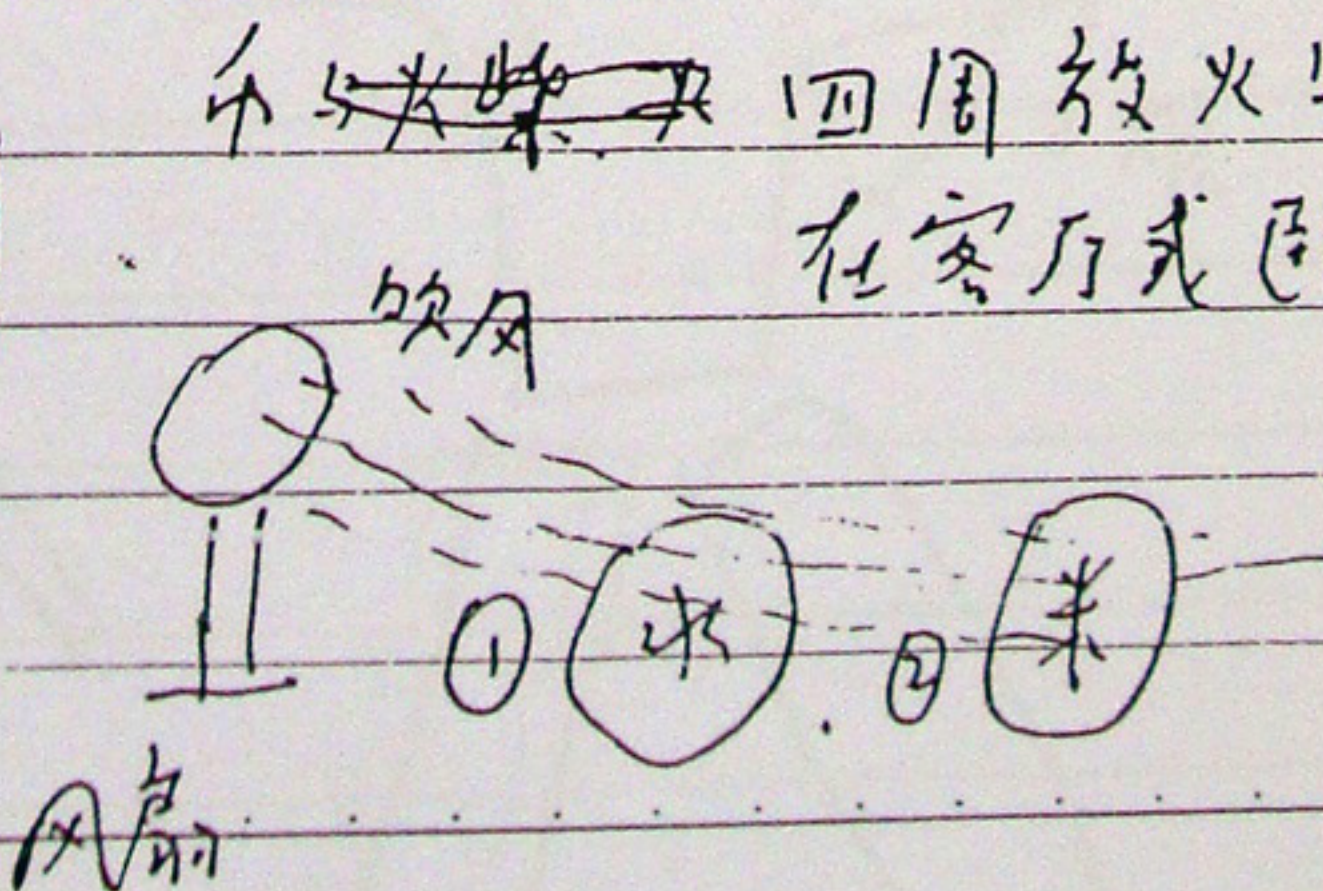 币 四周放火
在客厅式
吹风
① 水 ② 米
风扇